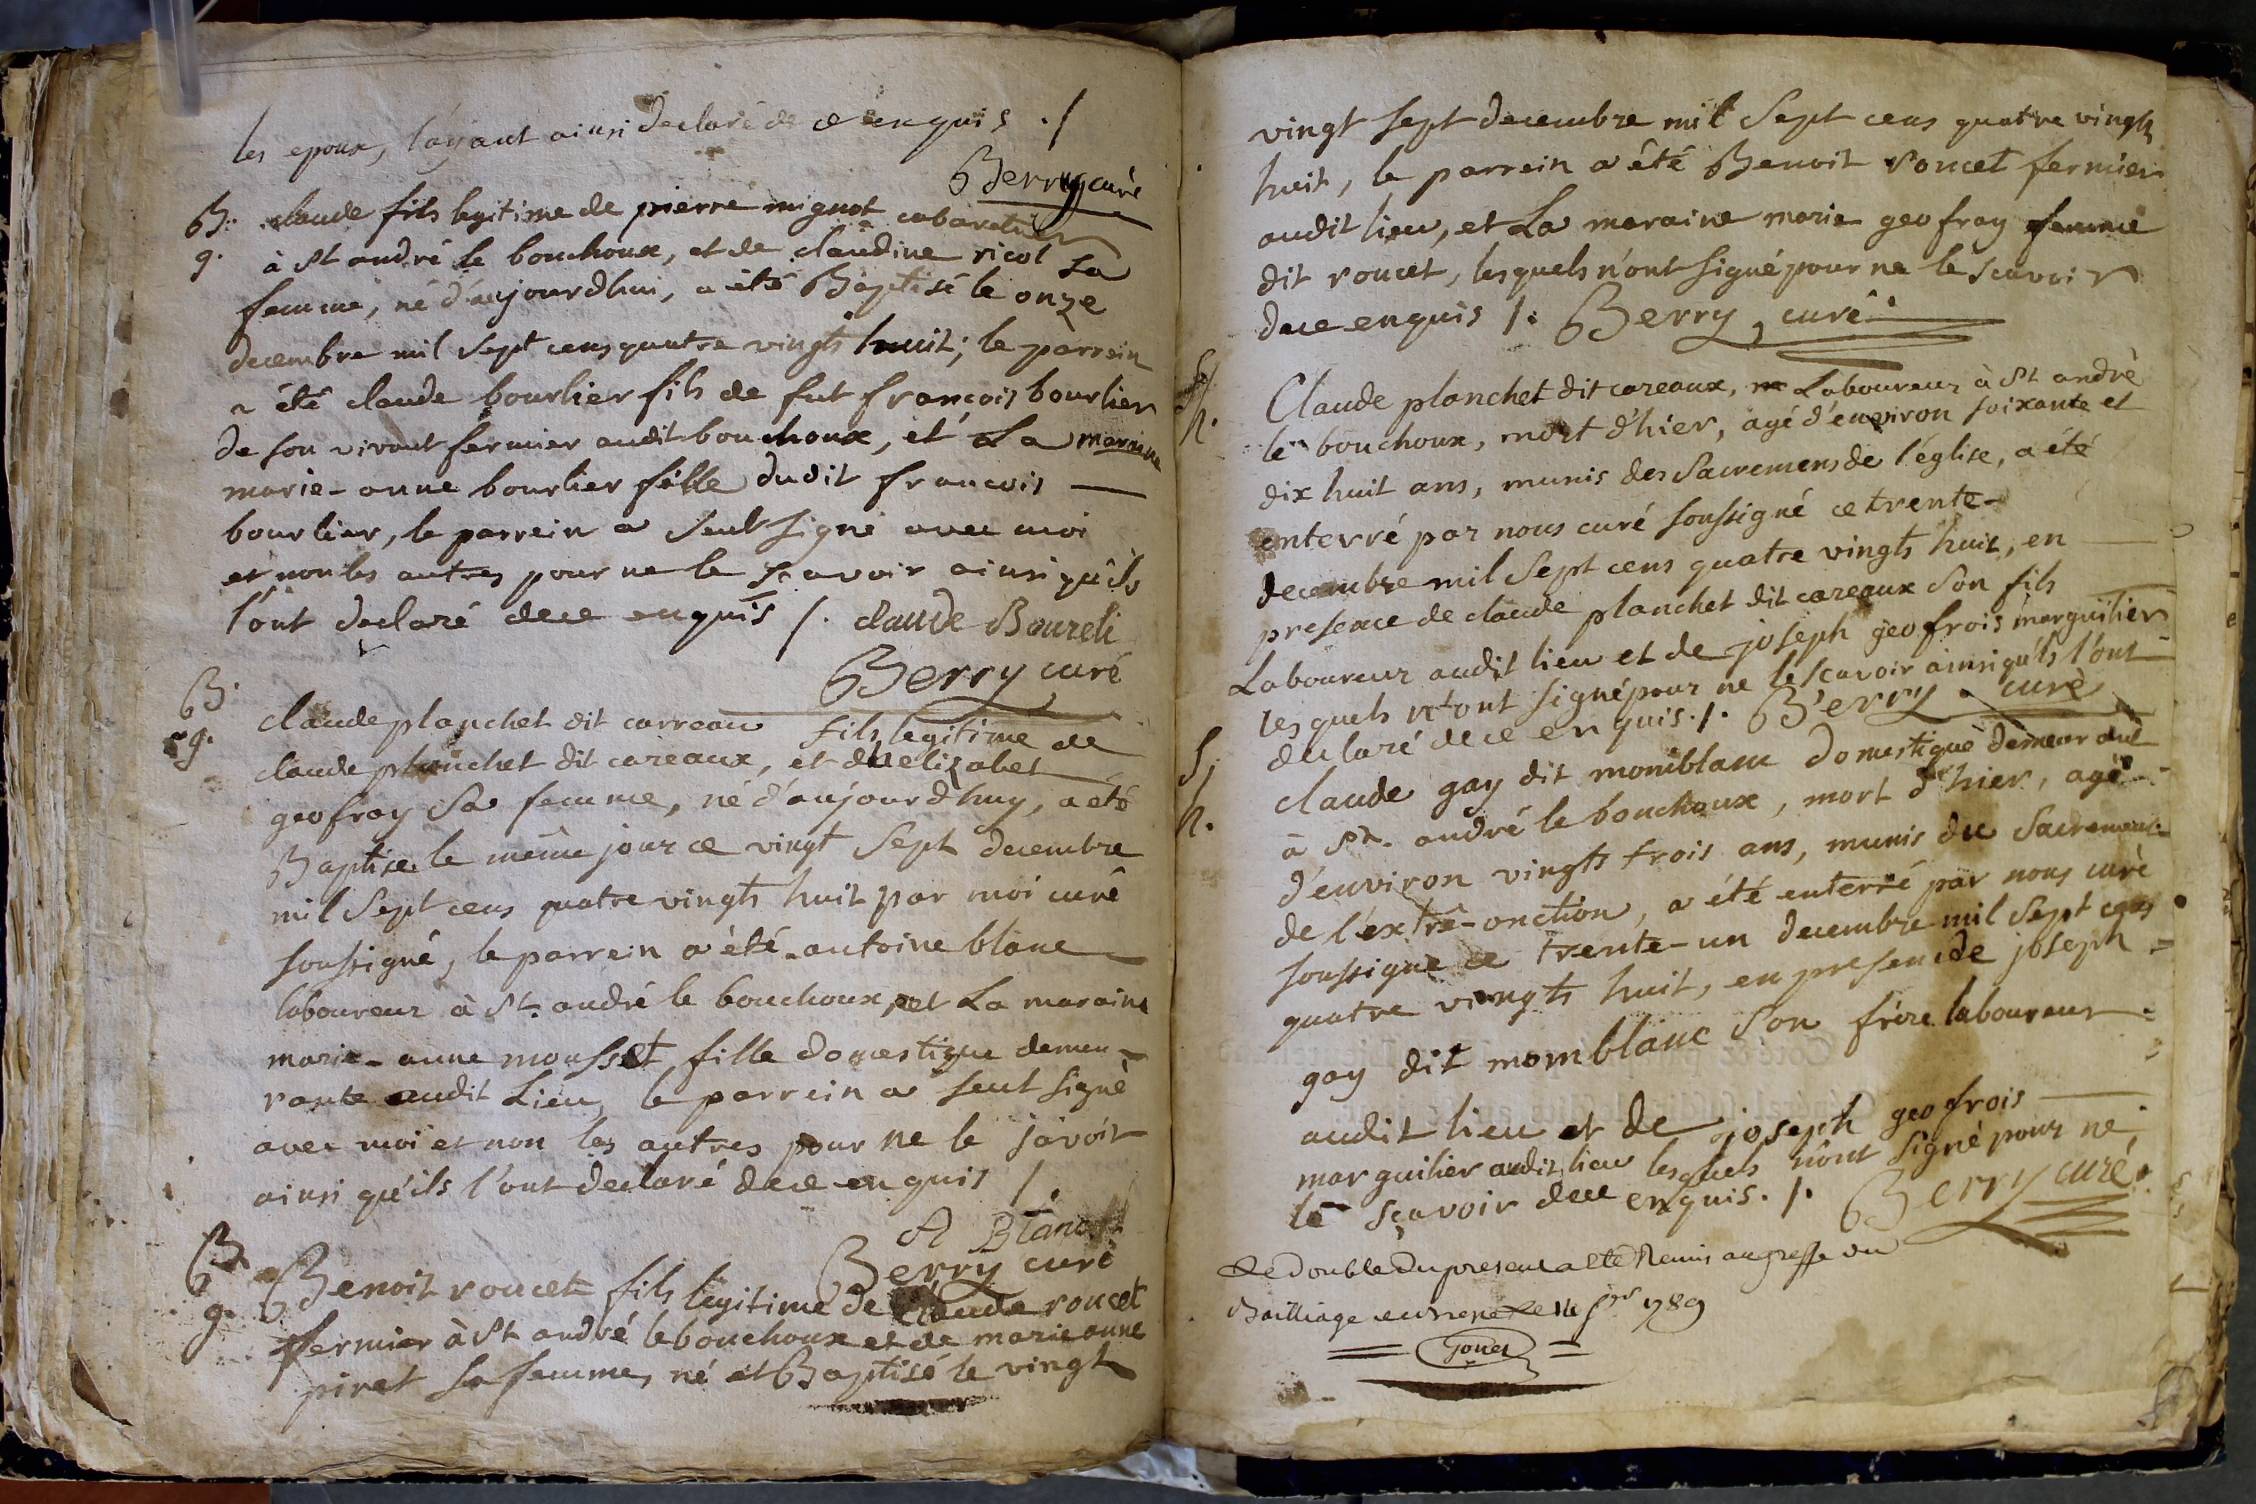 les epoux, l'ayant ainsi declaré de ce enquis ./
Berry curé
B. claude fils legitime de pierre mignot cabaretier
g. à St andré le bouchoux, et de claudine ricol sa
femme, né d'aujourdhui, a été Baptisé le onze
decembre mil sept cens quatre vingts huit; le parrein
a été claude bourlier fils de fut françois bourlier
de son vivant fermier audit bouchoux, et La maraine
marie-anne bourlier fille dudit francois
bourlier, le parrein a seul signé avec moi
et non les autres pour ne le scavoir ainsi qu'ils
l'ont declaré dece enquis /. claude Boureli
Berry curé
B.
g. claude planchet dit carreau fils legitime de
claude planchet dit careaux, et d'elizabet
geofray sa femme, né d'aujourdhuy, a été
Baptisé le même jour ce vingt sept decembre
mil sept cens quatre vingts huit par moi curé
soussigné, le parrein a été antoine blanc
laboureur à St. andré le bouchoux, et La maraine
marie-anne mousset fille domestique demeu-
rante audit Lieu, le parrein a seul signé
avec moi et non les autres pour ne le savoir
ainsi qu'ils l'ont declaré dece enquis /.
A Blanc
Berry curé
B.
g. Benoit roucet fils legitime de claude roucet
fermier à St andré le bouchoux et de marie anne
piret sa femme, né et Baptisé le vingt
vingt sept decembre mil sept cens quatre vingts
huit, le parrein a été Benoit roucet fermier
audit lieu, et La maraine marie geofray femme
dit roucet, lesquels n'ont signé pour ne le scavoir
dece enquis /. Berry, curé
S.
h. Claude planchet dit careaux, Laboureur à St andré
le bouchoux, mort d'hier, agé d'environ soixante et
dix huit ans, munis des Sacremens de l'église, a été
enterré par nous curé soussigné ce trente
decembre mil sept cens quatre vingts huit, en
presence de claude planchet dit careaux son fils
Laboureur audit lieu et de joseph geofrois marguilier
lesquels n'ont signé pour ne le scavoir ainsi qu'ils l'ont
declaré dece enquis ./. Berry curé
S.
h. claude gay dit momblanc domestique demeurant
à St. andré le bouchoux, mort d'hier, agé
d'environ vingts trois ans, munis du Sacrement
de l'extrê-onction, a été enterré par nous curé
soussigné ce trente-un decembre mil sept cens
quatre vingts huit, en presence de joseph
gay dit momblanc son frère laboureur
audit lieu et de joseph geofrois
marguilier audit lieu lesquels n'ont signé pour ne
le sçavoir dece enquis ./. Berry curé
Le double du present a été Remis au greffe du
Bailliage le 14 1789
Gouet